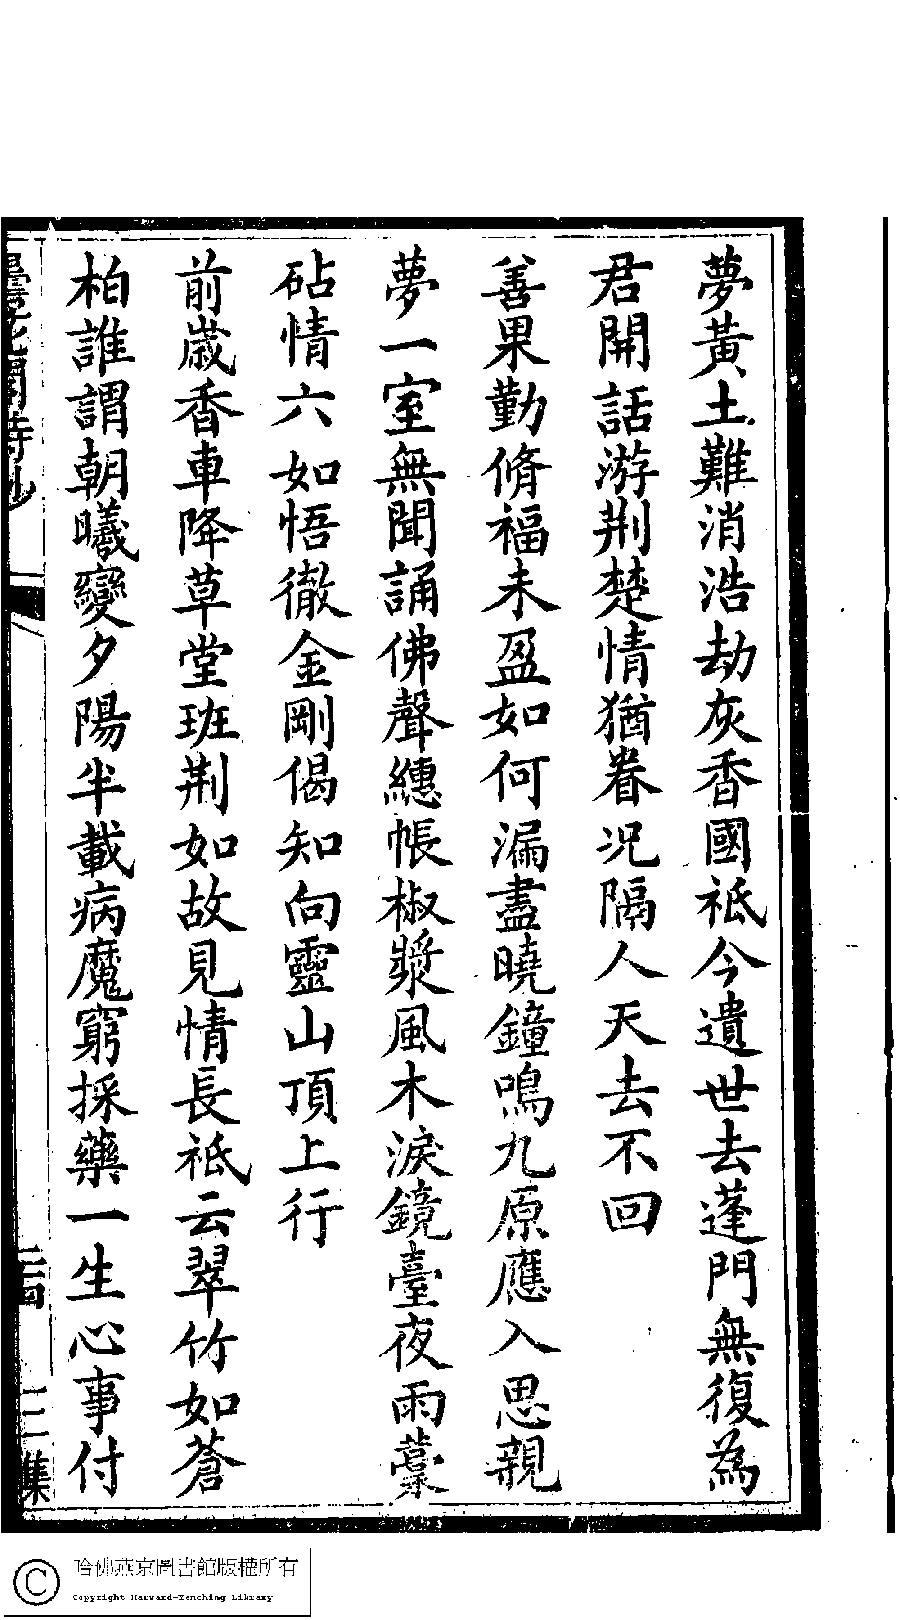 夢黃土難消浩劫灰香國祗今遺世去蓬門無復為
君開話游荆楚情猶眷况隔人天去不回
善果勤脩福未盈如何漏盡曉鐘鳴九原應入思親
夢一室無聞誦佛聲繐帳椒漿風木淚鏡臺夜雨藁
砧情六如悟徹金剛偈知向靈山頂上行
前歲香車降草堂班荆如故見情長祗云翠竹如蒼
柏誰謂朝曦變夕陽半載病魔窮採藥一生心事付
詩鈔
二集
哈佛燕京圖書館版權所有
Copyright Harvard-Yenching Library